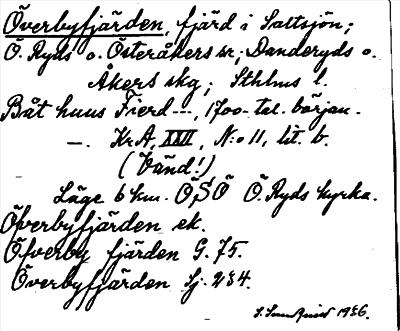 Överbyfjärden, fjärd i Saltsjön;
Ö. Ryds o. Österåkers sr; Danderyds o.
Åkers skg; Sthlms l.
Båt huus Fierd---, 1700-tal. början.
—. Kr.A, XXVI, N:o 11, lit. b.
(Vänd!)
Läge 6 km. Ö,S,Ö Ö. Ryds kyrka.
Överbyfjärden ek.
Öfverby fjärden G. 75.
Överbyfjärden Sj. 234.
1936.